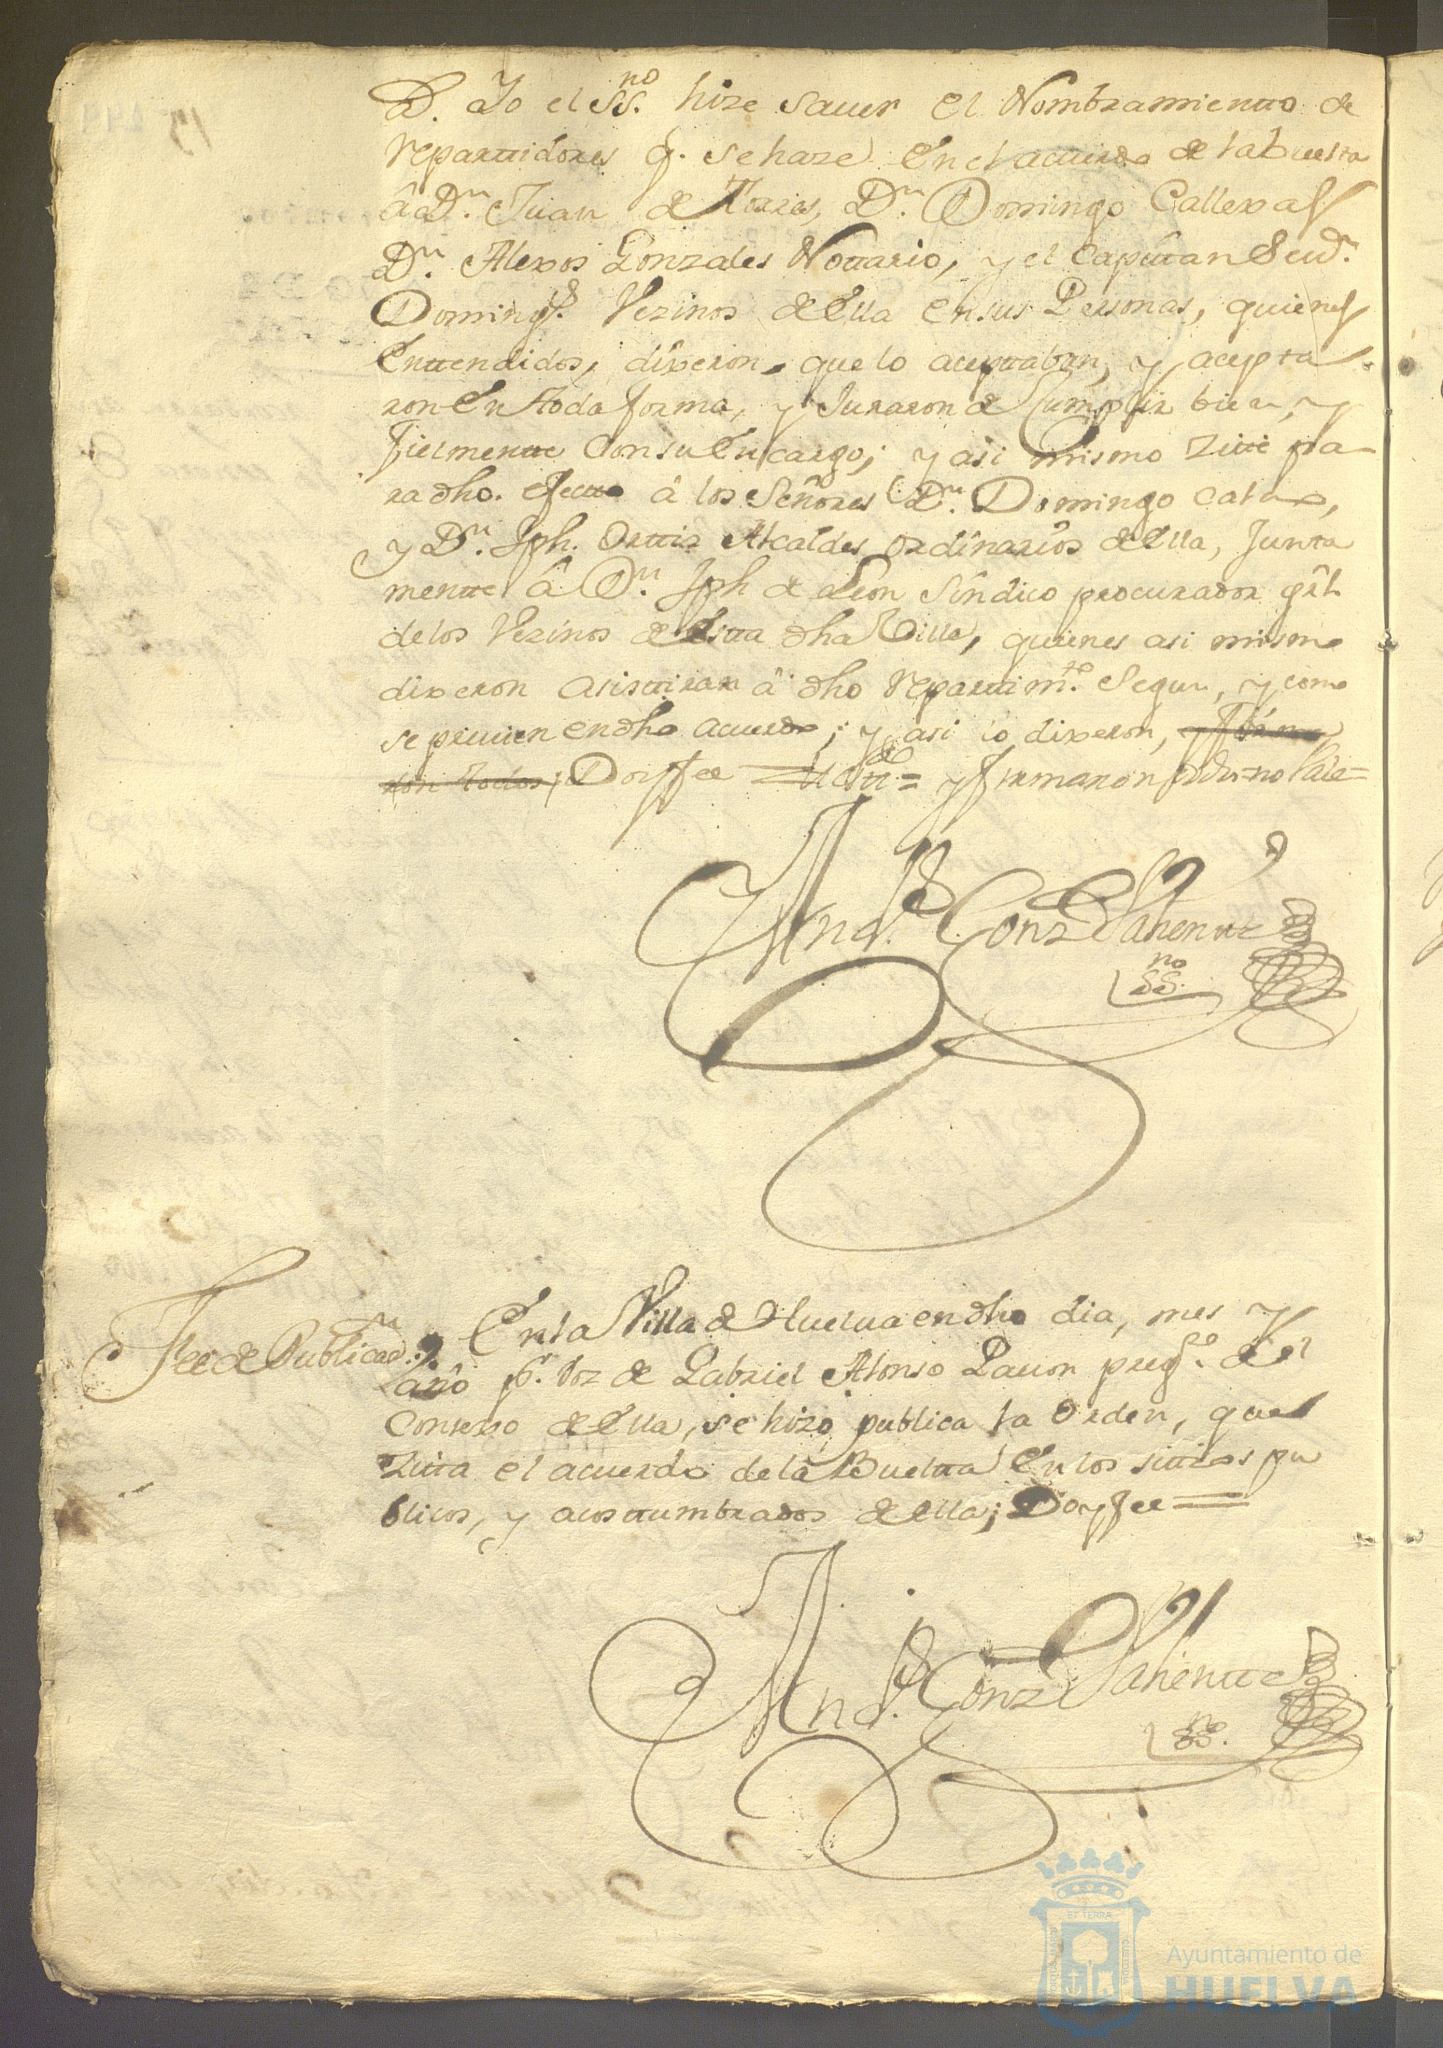 D. Yo el SS.no hize saver el Nombramientto de
reparttidores q. se haze en el acuerdo de la buelta
â D.n Juan de Torres, D.n Domingo Callexas
D.n Alexos Gonzales Nottario, y el Capittan
Doming.s Vezinos de Ella en sus Personas, quienes
Enttendidos, dixeron, que lo acepttaban, y acepta
ron En toda forma, y Juraron de Cumplir bien, y
fielmentte Con su Encargo; y asi mismo Zitte pa-
ra dho. efectto â los Señores D.n Domingo
y D.n Jph. Orttiz Alcaldes ordinarios de Ella, Junta
mentte â D.n Jph de Leon Sîndico procurador grâl
de los Vezinos de Estta dha Villa, quienes asi mismo
dixeron Asisttiran â dho reparttim.to Segun, y como
se previen en dho acuerdo; y asi lo dixeron, y firma
ron todos; Doy fee = y firmaron = no vale =
And.s Gonz Valientte
SS.no
Fee de Publicaz.n
En la Villa de Huelva en dho dia, mes y
año p.r voz de Gabriel Alonso Pavon preg.o del
Consexo de Ella, se hizo publica la Orden, que
Zitta el acuerdo de la Bueltta En los sittios pu
blicos, y acosttumbrados de Ella; Doy fee =
And.s Gonz Valientte
SS.no
ET TERRA
Ayuntamiento de
HUELVA